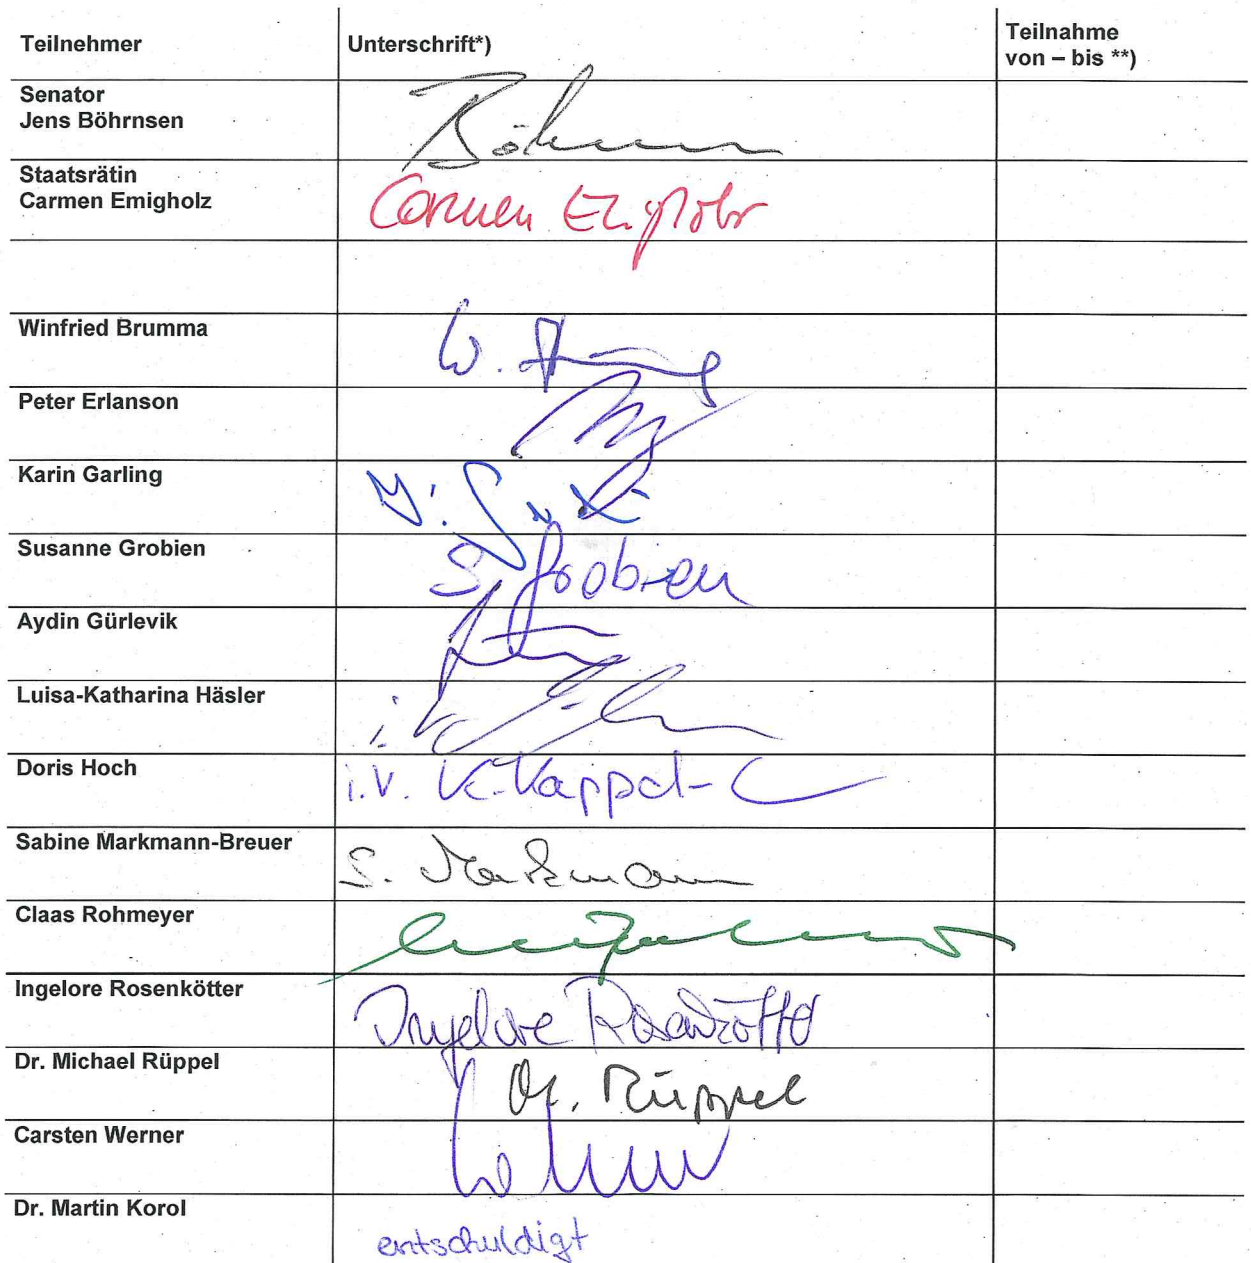 Teilnehmer Unterschrift*) Teilnahme
von – bis **)
Senator
Jens Böhrnsen
Staatsrätin
Carmen Emigholz Carmen
Winfried Brumma W.
Peter Erlanson
Karin Garling
Susanne Grobien S. Grobien
Aydin Gürlevik
Luisa-Katharina Häsler
Doris Hoch i.V.
Sabine Markmann-Breuer S. Markmann
Claas Rohmeyer
Ingelore Rosenkötter Ingelore Rosenkötter
Dr. Michael Rüppel M. Rüppel
Carsten Werner
Dr. Martin Korol entschuldigt